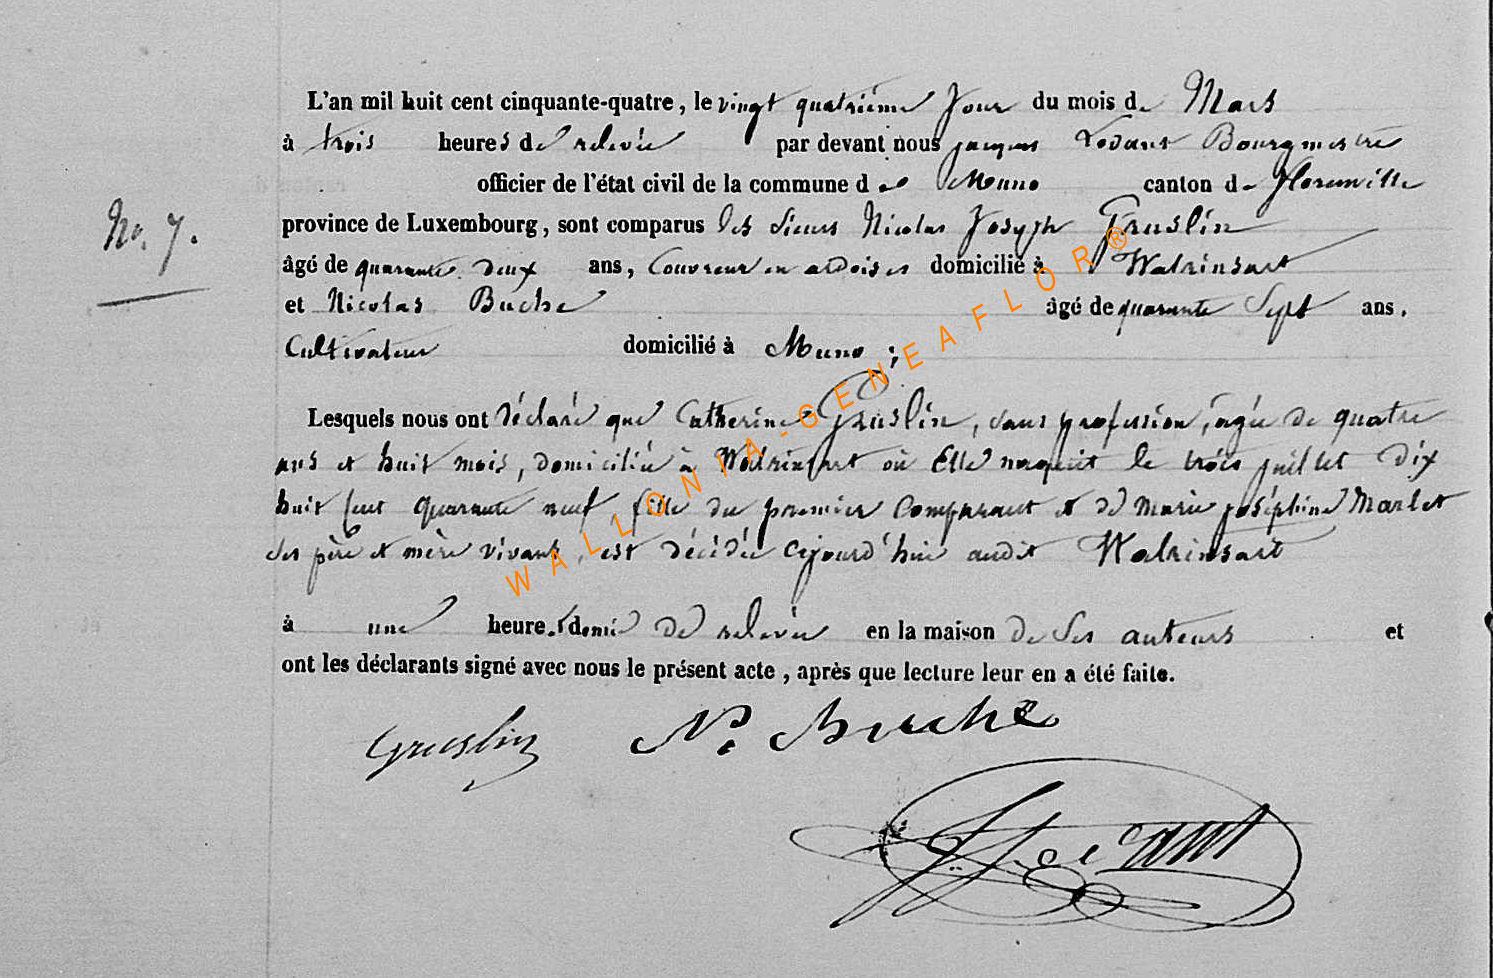 L'an mil huit cent cinquante-quatre, le vingt quatrième Jour du mois de Mars
à trois heures de relevée par devant nous jacques Lodant Bourgmestre
officier de l'état civil de la commune de Muno canton de florenville
No. 7.
province de Luxembourg, sont comparus les Sieurs Nicolas Joseph Gruslin
âgé de quarante deux ans, Couvreur en ardoises domicilié à Watrinsart
et Nicolas Buche âgé de quarante Sept ans.
Cultivateur domicilié à Muno ;
Lesquels nous ont déclaré que Catherine Gruslin, sans profession, âgée de quatre
ans et huit mois, domiciliée à Watrinsart où Elle naquit le trois juillet dix
huit Cent quarante neuf, fille du premier Comparant et de marie joséphine Marlet
ses père et mère vivants, est décédée cejourd'hui audit Watrinsart
à une heure & demie de relevée en la maison de Ses auteurs et
ont les déclarants signé avec nous le présent acte, après que lecture leur en a été faite.
Gruslin N. Buche
WALLONIA-GENEAFLOR®